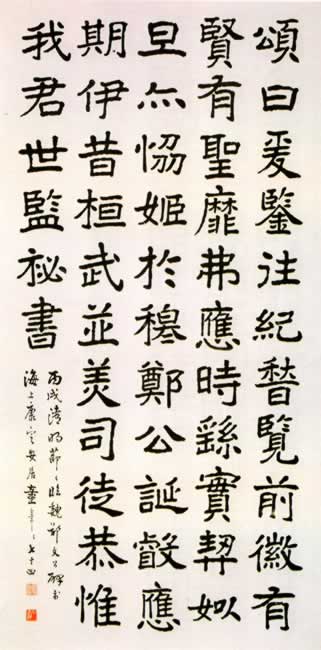 頌曰爰鑒往紀稽覽前徽有
賢有聖靡弗應時繇實契姒
旦亦恊姬於穆鄭公誕叡應
期伊昔桓武並美司徒恭惟
我君世監祕書
丙戌清明節臨魏鄭文公碑於
海上康定安居童七十四